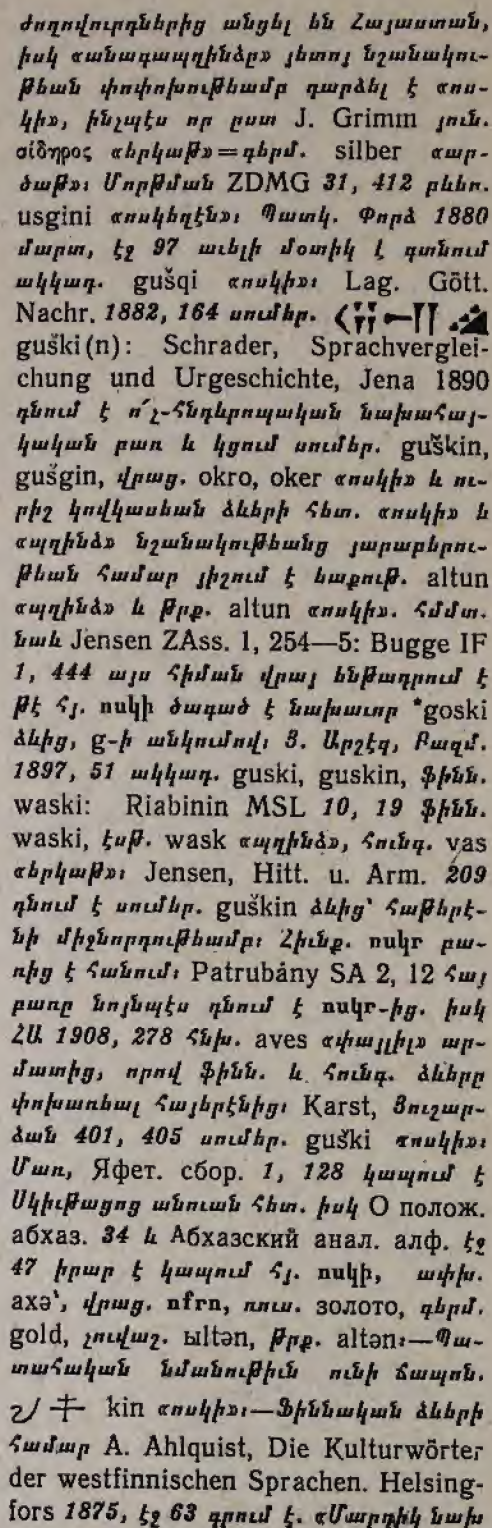 ժողովուրդներից անցել են Հայաստան,
իսկ «անագապղինձը» յետոյ նշանակու-
թեան փոփոխութեամբ դարձել է «ոս-
կի», ինչպէս որ ըստ J. Grimm յուն.
σίδηρος «երկաթ»=գերմ. silber «ար-
ծաթ»։ Մորթման ZDMG 31, 412 բևեռ.
usgini «ոսկեղէն»։ Պատկ. Փորձ 1880
մարտ, էջ 97 աւելի մօտիկ է գտնում
ակկադ. gušqi «ոսկի»։ Lag. Gött.
Nachr. 1882, 164 սումեր.
guški(n): Schrader, Sprachverglei-
chung und Urgeschichte, Jena 1890
դնում է ո՛չ-հնդևրոպական նախահայ-
կական բառ և կցում սումեր. guškin,
gušgin, վրաց. okro, oker «ոսկի» և ու-
րիշ կովկասեան ձևերի հետ. «ոսկի» և
«պղինձ» նշանակութեանց յարաբերու-
թեան համար յիշում է եաքութ. altun
«պղինձ» և թրք. altun «ոսկի». Հմմտ.
նաև Jensen ZAss. 1, 254—5: Bugge IF
1, 444 այս հիման վրայ ենթադրում է
թէ հյ. ոսկի ծագած է նախաւոր *goski
ձևից, g-ի անկումով։ Յ. Արշէզ, Բազմ.
1897, 51 ակկադ. guski, guskin, ֆինն.
waski: Riabinin MSL 10, 19 ֆինն.
waski, էսթ. wask «պղինձ», հունգ. vas
«երկաթ»։ Jensen, Hitt. u. Arm. 209
դնում է սումեր. guškin ձևից՝ հաթերէ-
նի միջնորդութեամբ։ Հիւնք. ոսկր բա-
ռից է հանում։ Patrubány SA 2, 12 հայ
բառը նոյնպէս դնում է ոսկր-ից. իսկ
ՀԱ 1908, 278 հնխ. aves «փայլիլ» ար-
մատից, որով ֆինն. և հունգ. ձևերը
փոխառեալ հայերէնից։ Karst, Յուշար-
ձան 401, 405 սումեր. guški «ոսկի»։
Մառ, Яфет. сбор. 1, 128 կապում է
Սկիւթացոց անուան հետ. իսկ О полож.
абхаз. 34 և Абхазский анал. алф. էջ
47 իրար է կապում հյ. ոսկի, ափխ.
axə‛, վրաց. ոքրո, ռուս. золото, գերմ.
gold, չուվաշ. ыltən, թրք. altən։—Պա-
տահական նմանութիւն ունի ճապոն.
kin «ոսկի»։—Ֆիննական ձևերի
համար A. Ahlquist, Die Kulturwörter
der westfinnischen Sprachen. Helsing-
fors 1875, էջ 63 գրում է. «Մարդիկ նախ